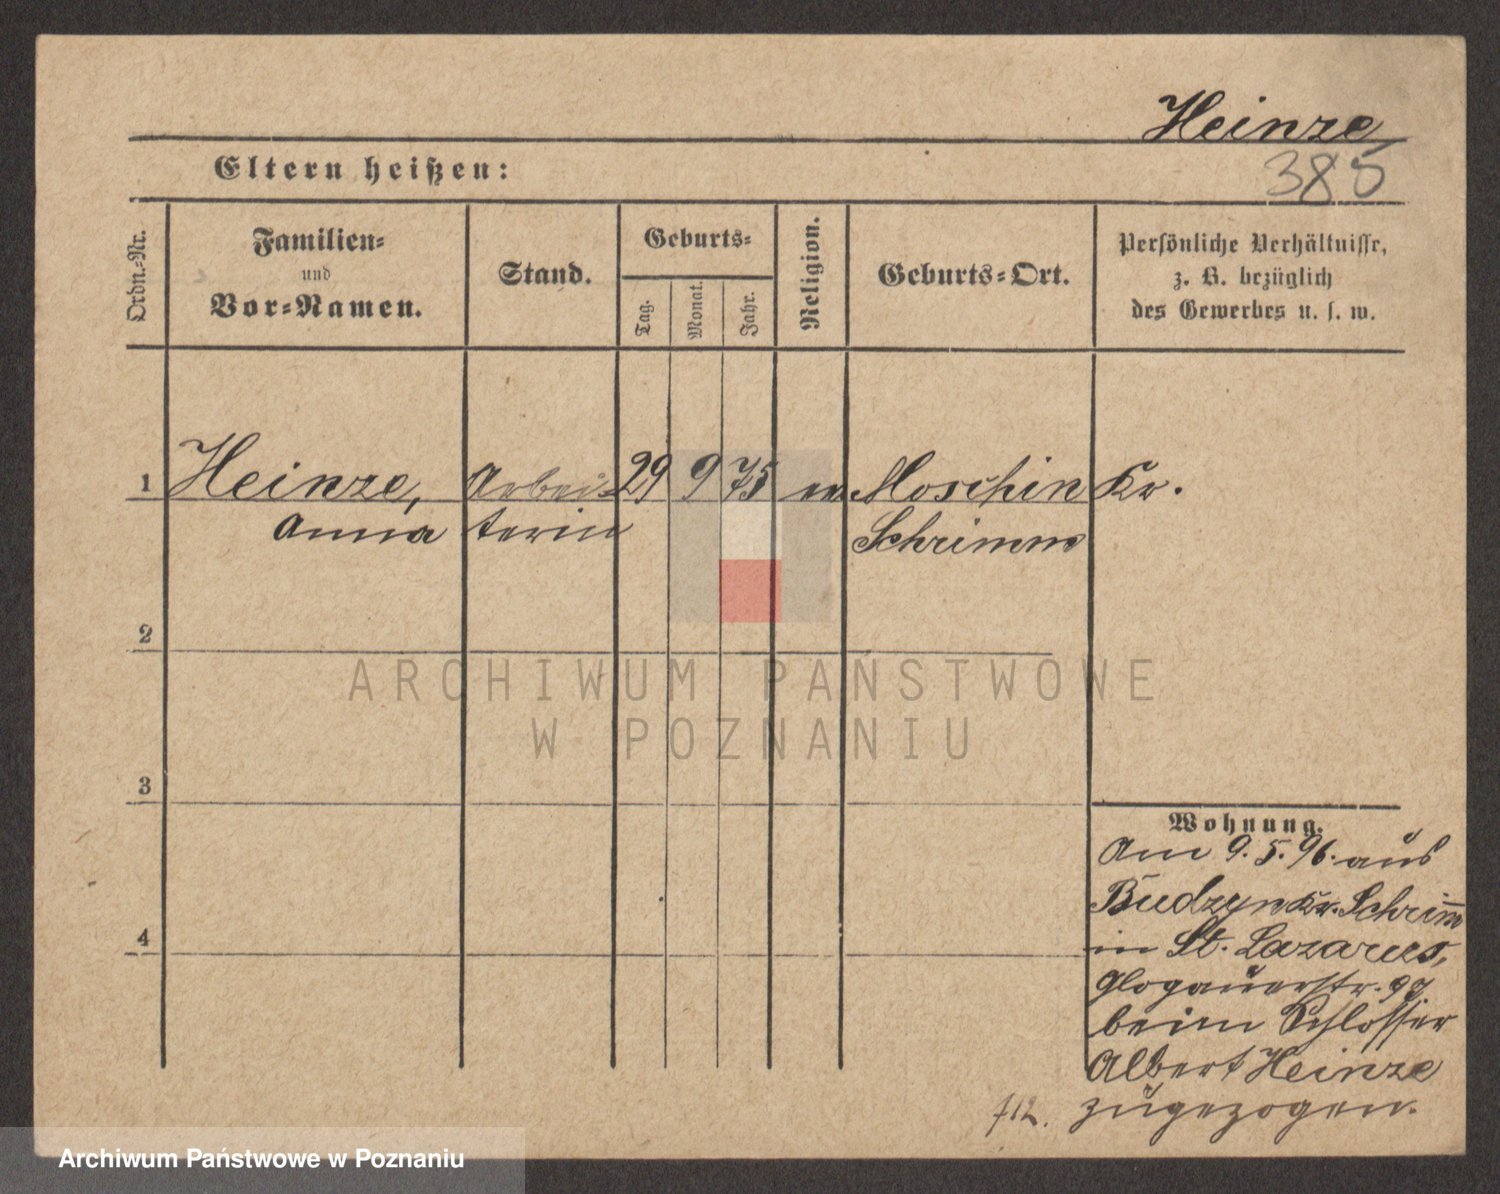 Heinze
385
Eltern heißen:
Ordn.-Nr.
Familien-
und
Vor-Namen.
Stand.
Geburts-
Tag.
Monat.
Jahr.
Religion.
Geburts-Ort.
Persönliche Verhältnisse,
z. B. bezüglich
des Gewerbes u. s. w.
1 Heinze, Arbei- 29 9 75 ev Moschin Kr.
Anna terin Schrimm
2
3
4
Wohnung.
Am 9. 5. 96. aus
Budzyn Kr. Schrim̅
in St. Lazarus,
Glogauerstr. 97
beim Schlosser
Albert Heinze
zugezogen.
ARCHIWUM PAŃSTWOWE
W POZNANIU
Archiwum Państwowe w Poznaniu